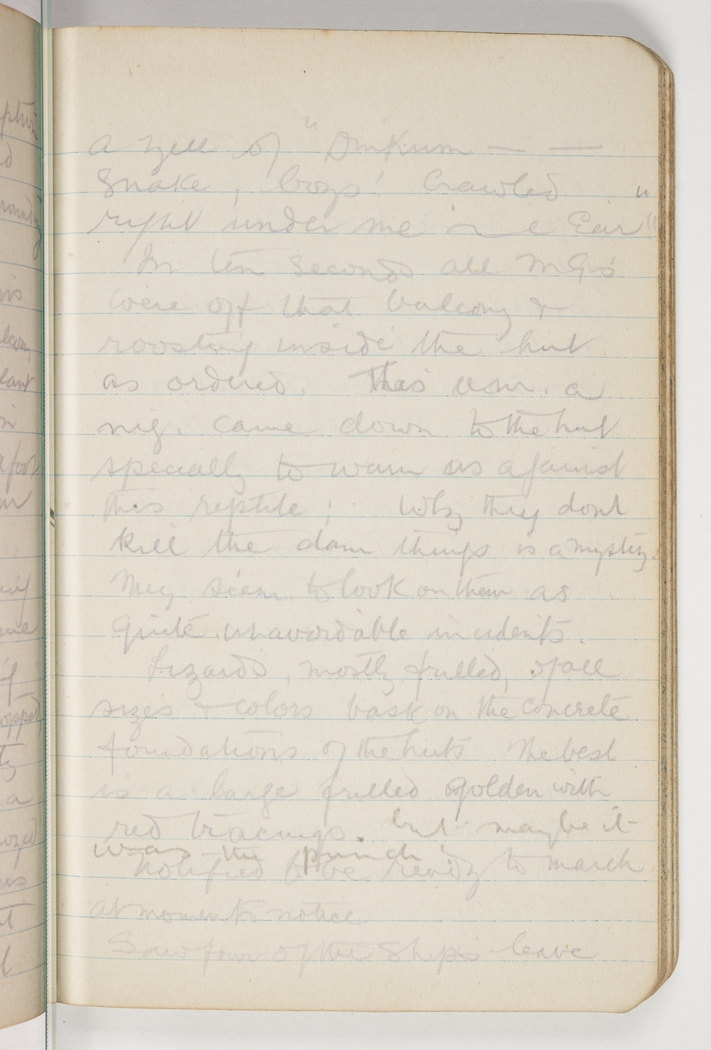 a yell of "Dinkum — —
Snake, boys! Crawled "
right under me in e Ear"!!
In ten seconds all M G's
were off that balcony &
roosting inside the hut
as ordered. This a.m. a
nig. came down to the hut
specially to warn us against
this reptile! Why they dont
kill the dam things is a mystery.
They seem to look on them as
quite unavoidable incidents.
Lizards, mostly frilled, of all
sizes & colors bask on the concrete
foundations of the huts The best
is a large frilled golden with
red tracings. but maybe it
was the punch!
Notified to be ready to march
at moments notice
Saw four of the Ships leave